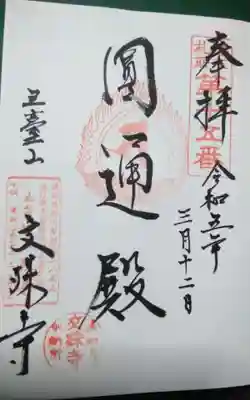 奉拝
札所
第十五番
令和五年
三月十二日
圓通殿
五臺山
文殊寺
文殊寺